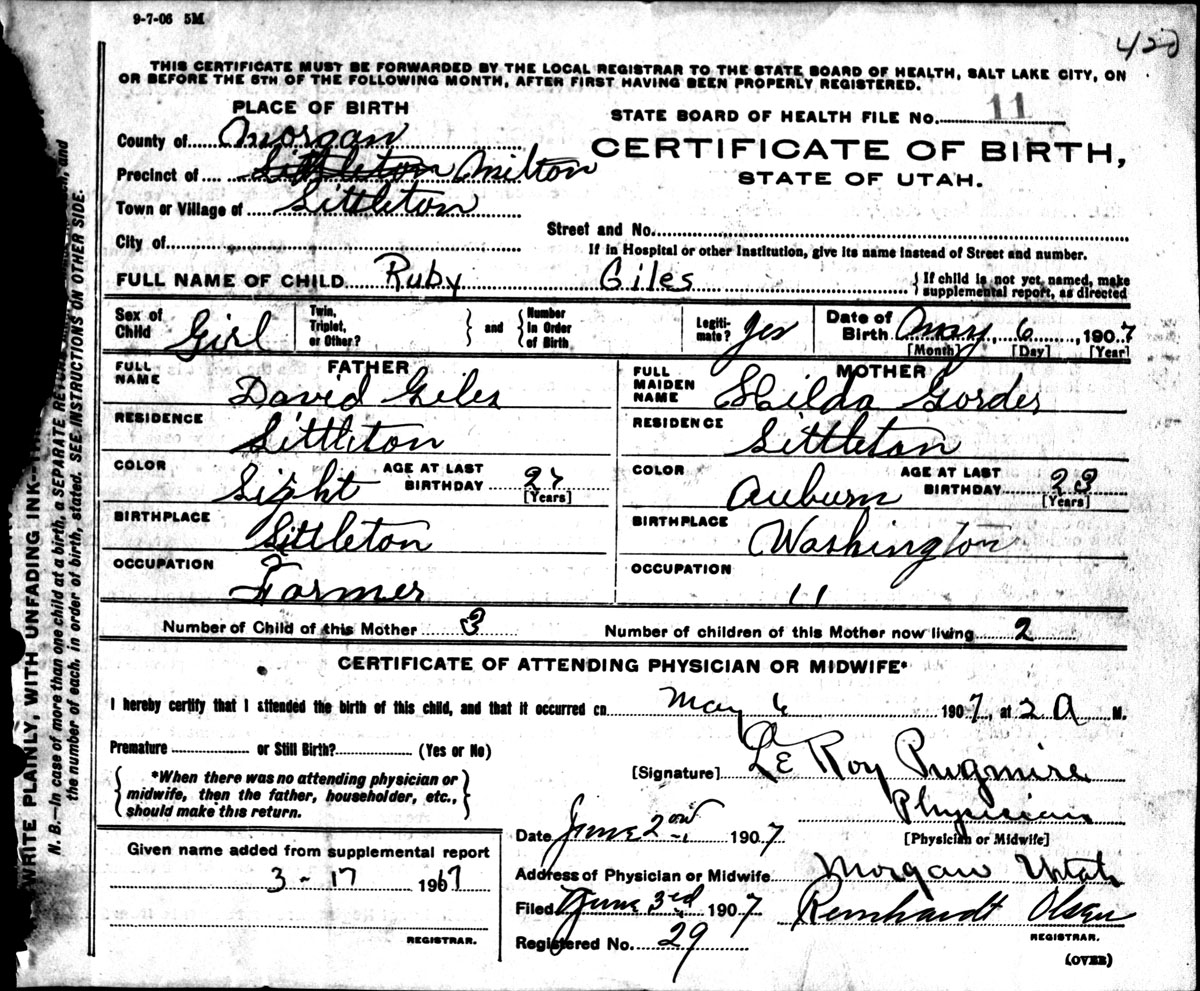 9-7-06 5M
420
THIS CERTIFICATE MUST BE FORWARDED BY THE LOCAL REGISTRAR TO THE STATE BOARD OF HEALTH, SALT LAKE CITY, ON
OR BEFORE THE 5TH OF THE FOLLOWING MONTH, AFTER FIRST HAVING BEEN PROPERLY REGISTERED.
PLACE OF BIRTH
STATE BOARD OF HEALTH FILE No. 11
County of Morgan
CERTIFICATE OF BIRTH,
Precinct of Littleton Milton
STATE OF UTAH.
Town or Village of Littleton
Street and No.
City of
If in Hospital or other Institution, give its name instead of Street and number.
FULL NAME OF CHILD Ruby Giles { If child is not yet named, make
supplemental report, as directed
Sex of Child Girl Twin, Triplet, or Other? } and { Number in Order of Birth Legiti- mate? Yes Date of Birth May 6, 1907
[Month] [Day] [Year]
FATHER MOTHER
FULL NAME David Giles FULL MAIDEN NAME Hilda Gorder
RESIDENCE Littleton RESIDENCE Littleton
COLOR Light AGE AT LAST BIRTHDAY 27 [Years] COLOR Auburn AGE AT LAST BIRTHDAY 23 [Years]
BIRTHPLACE Littleton BIRTHPLACE Washington
OCCUPATION Farmer OCCUPATION 11
Number of Child of this Mother 3 Number of children of this Mother now living 2
CERTIFICATE OF ATTENDING PHYSICIAN OR MIDWIFE*
I hereby certify that I attended the birth of this child, and that it occurred on May 6 1907, at 2 A M.
Premature or Still Birth? (Yes or No)
[Signature] Le Roy Pugmire
{ *When there was no attending physician or
midwife, then the father, householder, etc.,
should make this return. }
Physician
[Physician or Midwife]
Date June 2nd 1907
Given name added from supplemental report
3-17 1967
REGISTRAR.
Address of Physician or Midwife Morgan Utah
Filed June 3rd 1907 Reinhardt Olsen
REGISTRAR.
Registered No. 29
(OVER)
WRITE PLAINLY, WITH UNFADING INK
N. B.—In case of more than one child at a birth, a SEPARATE RETURN
and
the number of each, in order of birth, stated. SEE INSTRUCTIONS ON OTHER SIDE.